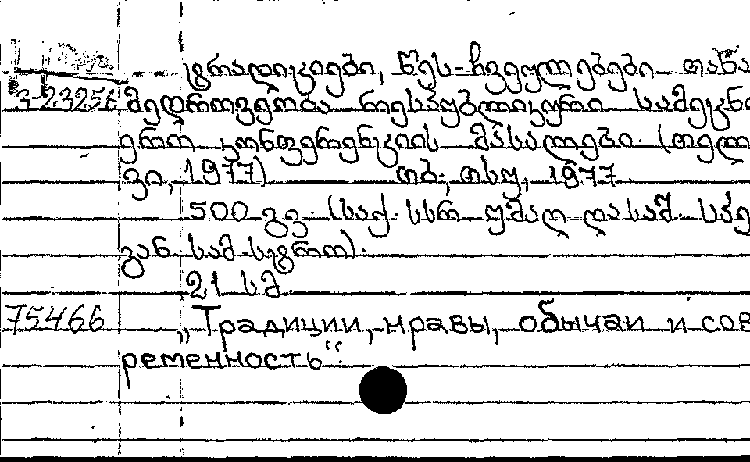 ტრადიციები, წეს-ჩვეულებები თანა
3-23256 მედროვეობა რესპუბლიკური სამეცნი
ერო კონფერენციის მასალები. (თელ
ვი, 1977) თბ., თსუ, 1977
500 გვ. (საქ. სსრ უმაღ. და საშ. სპე
გან. სამ-სტრო).
21 სმ.
75466 „Традиции, нравы, обычаи и сов
ременность“